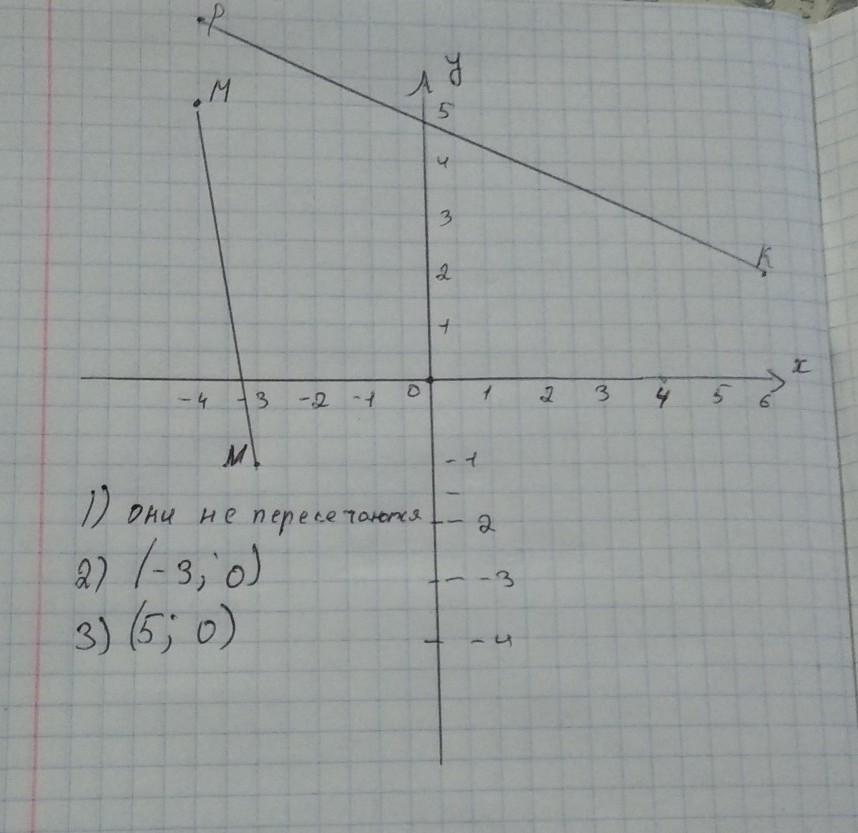 P
y
M
5
4
3
2
K
1
x
-4 -3 -2 -1 0 1 2 3 4 5 6
M
-1
1) они не пересечаются
-2
2) (-3; 0)
-3
3) (5; 0)
-4